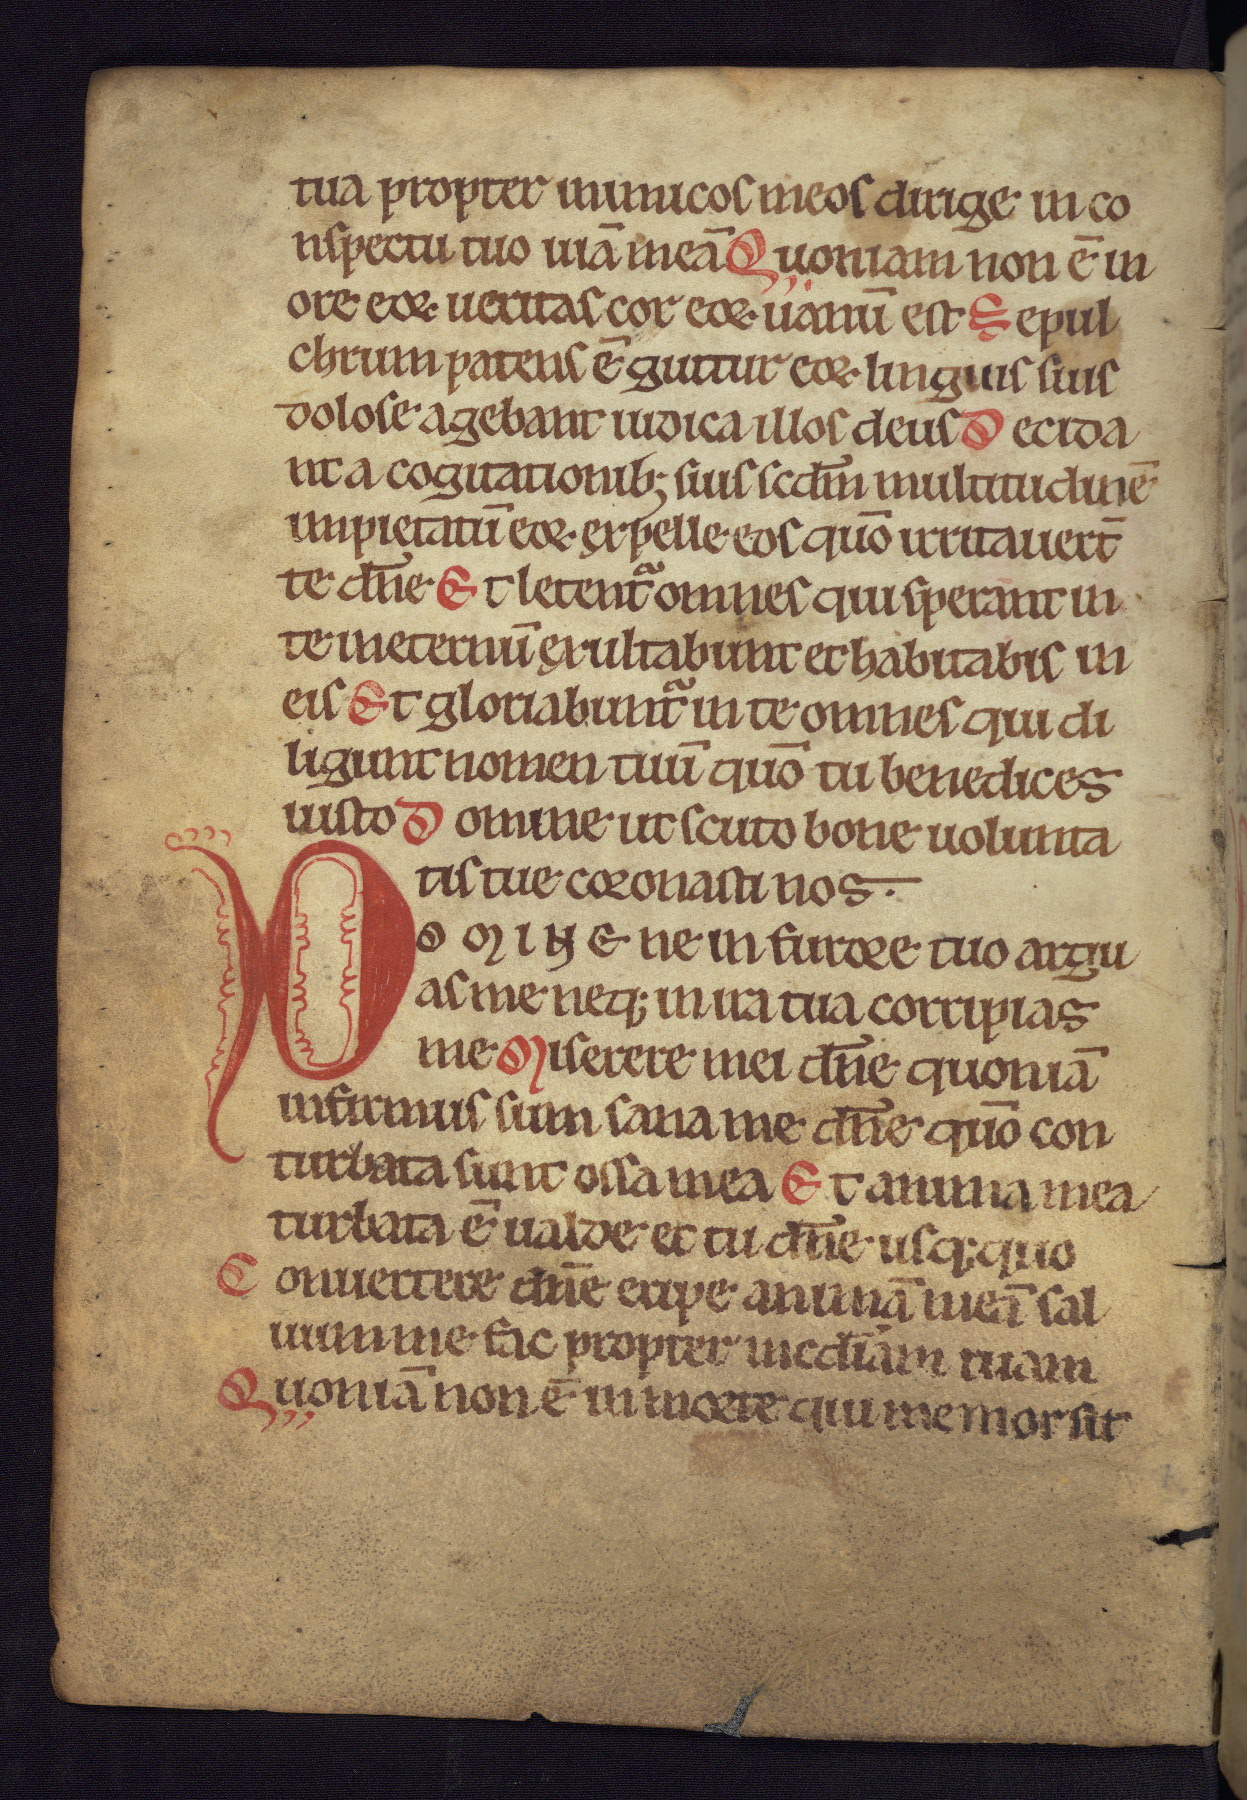 tua propter inimicos meos dirige in co
nspectu tuo uiā meā Quoniam non ē in
ore eoꝝ ueritas cor eoꝝ uanū est Sepul
chrum patens ē guttur eoꝝ linguis suis
dolose agebant iudica illos deus Decida
nt a cogitationib; suis scdm̄ multitudinē
impietatū eoꝝ expelle eos quō irritauert̄
te dn̄e Et letent᷑ omnes qui sperant in
te in eternū exultabunt et habitabis in
eis Et gloriabunt᷑ in te omnes qui di
ligunt nomen tuū quō tu benedices
iusto Domine ut scuto bone uolunta
tis tue coronasti nos.
DOMINE ne in furore tuo argu
as me neq; in ira tua corripias
me Miserere mei dn̄e quoniā
infirmus sum sana me dn̄e quō con
turbata sunt ossa mea Et anima mea
turbata ē ualde et tu dn̄e usq; quo
Conuertere dn̄e eripe animā meā sal
uum me fac propter mcdiā̄m tuam
Quoniā non ē in morte qui memor sit